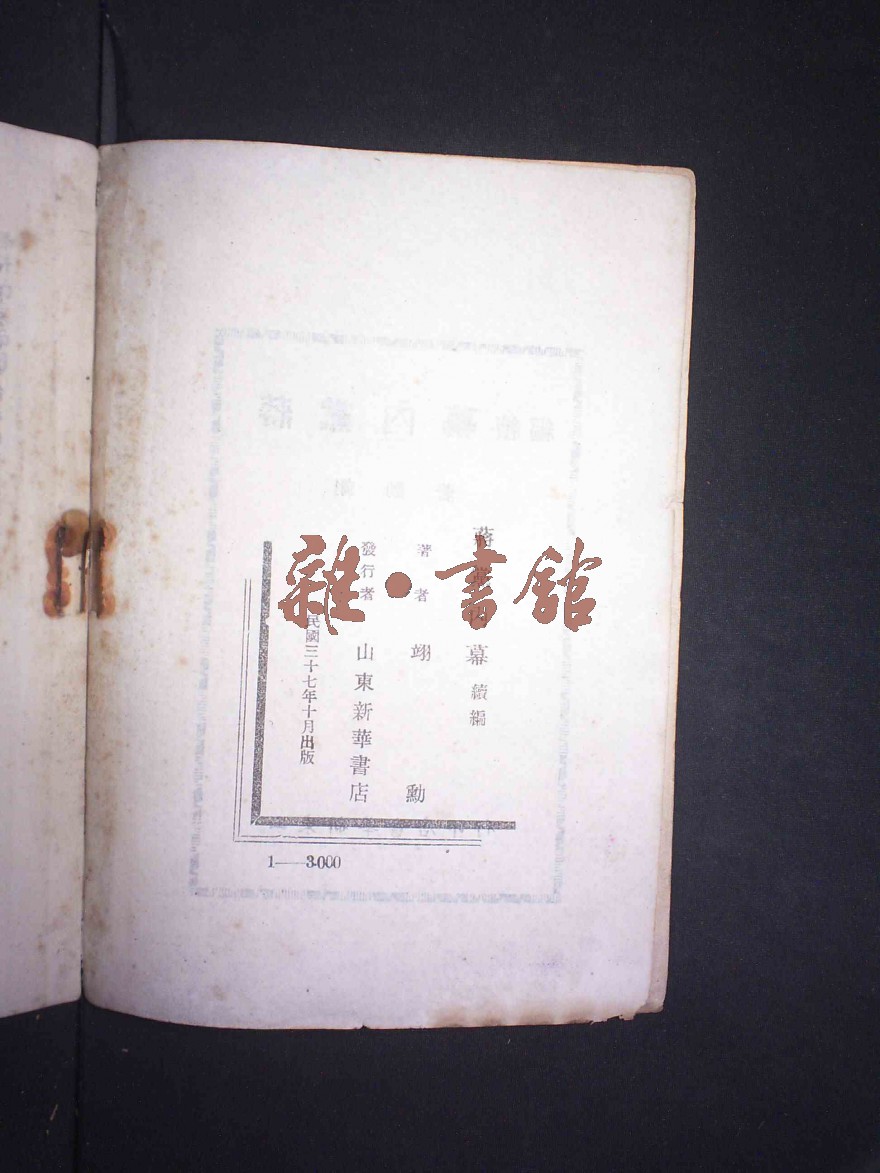 蔣黨內幕 續編
著者 翊勳
發行者 山東新華書店
民國三十七年十月出版
1——3000
雜·書館